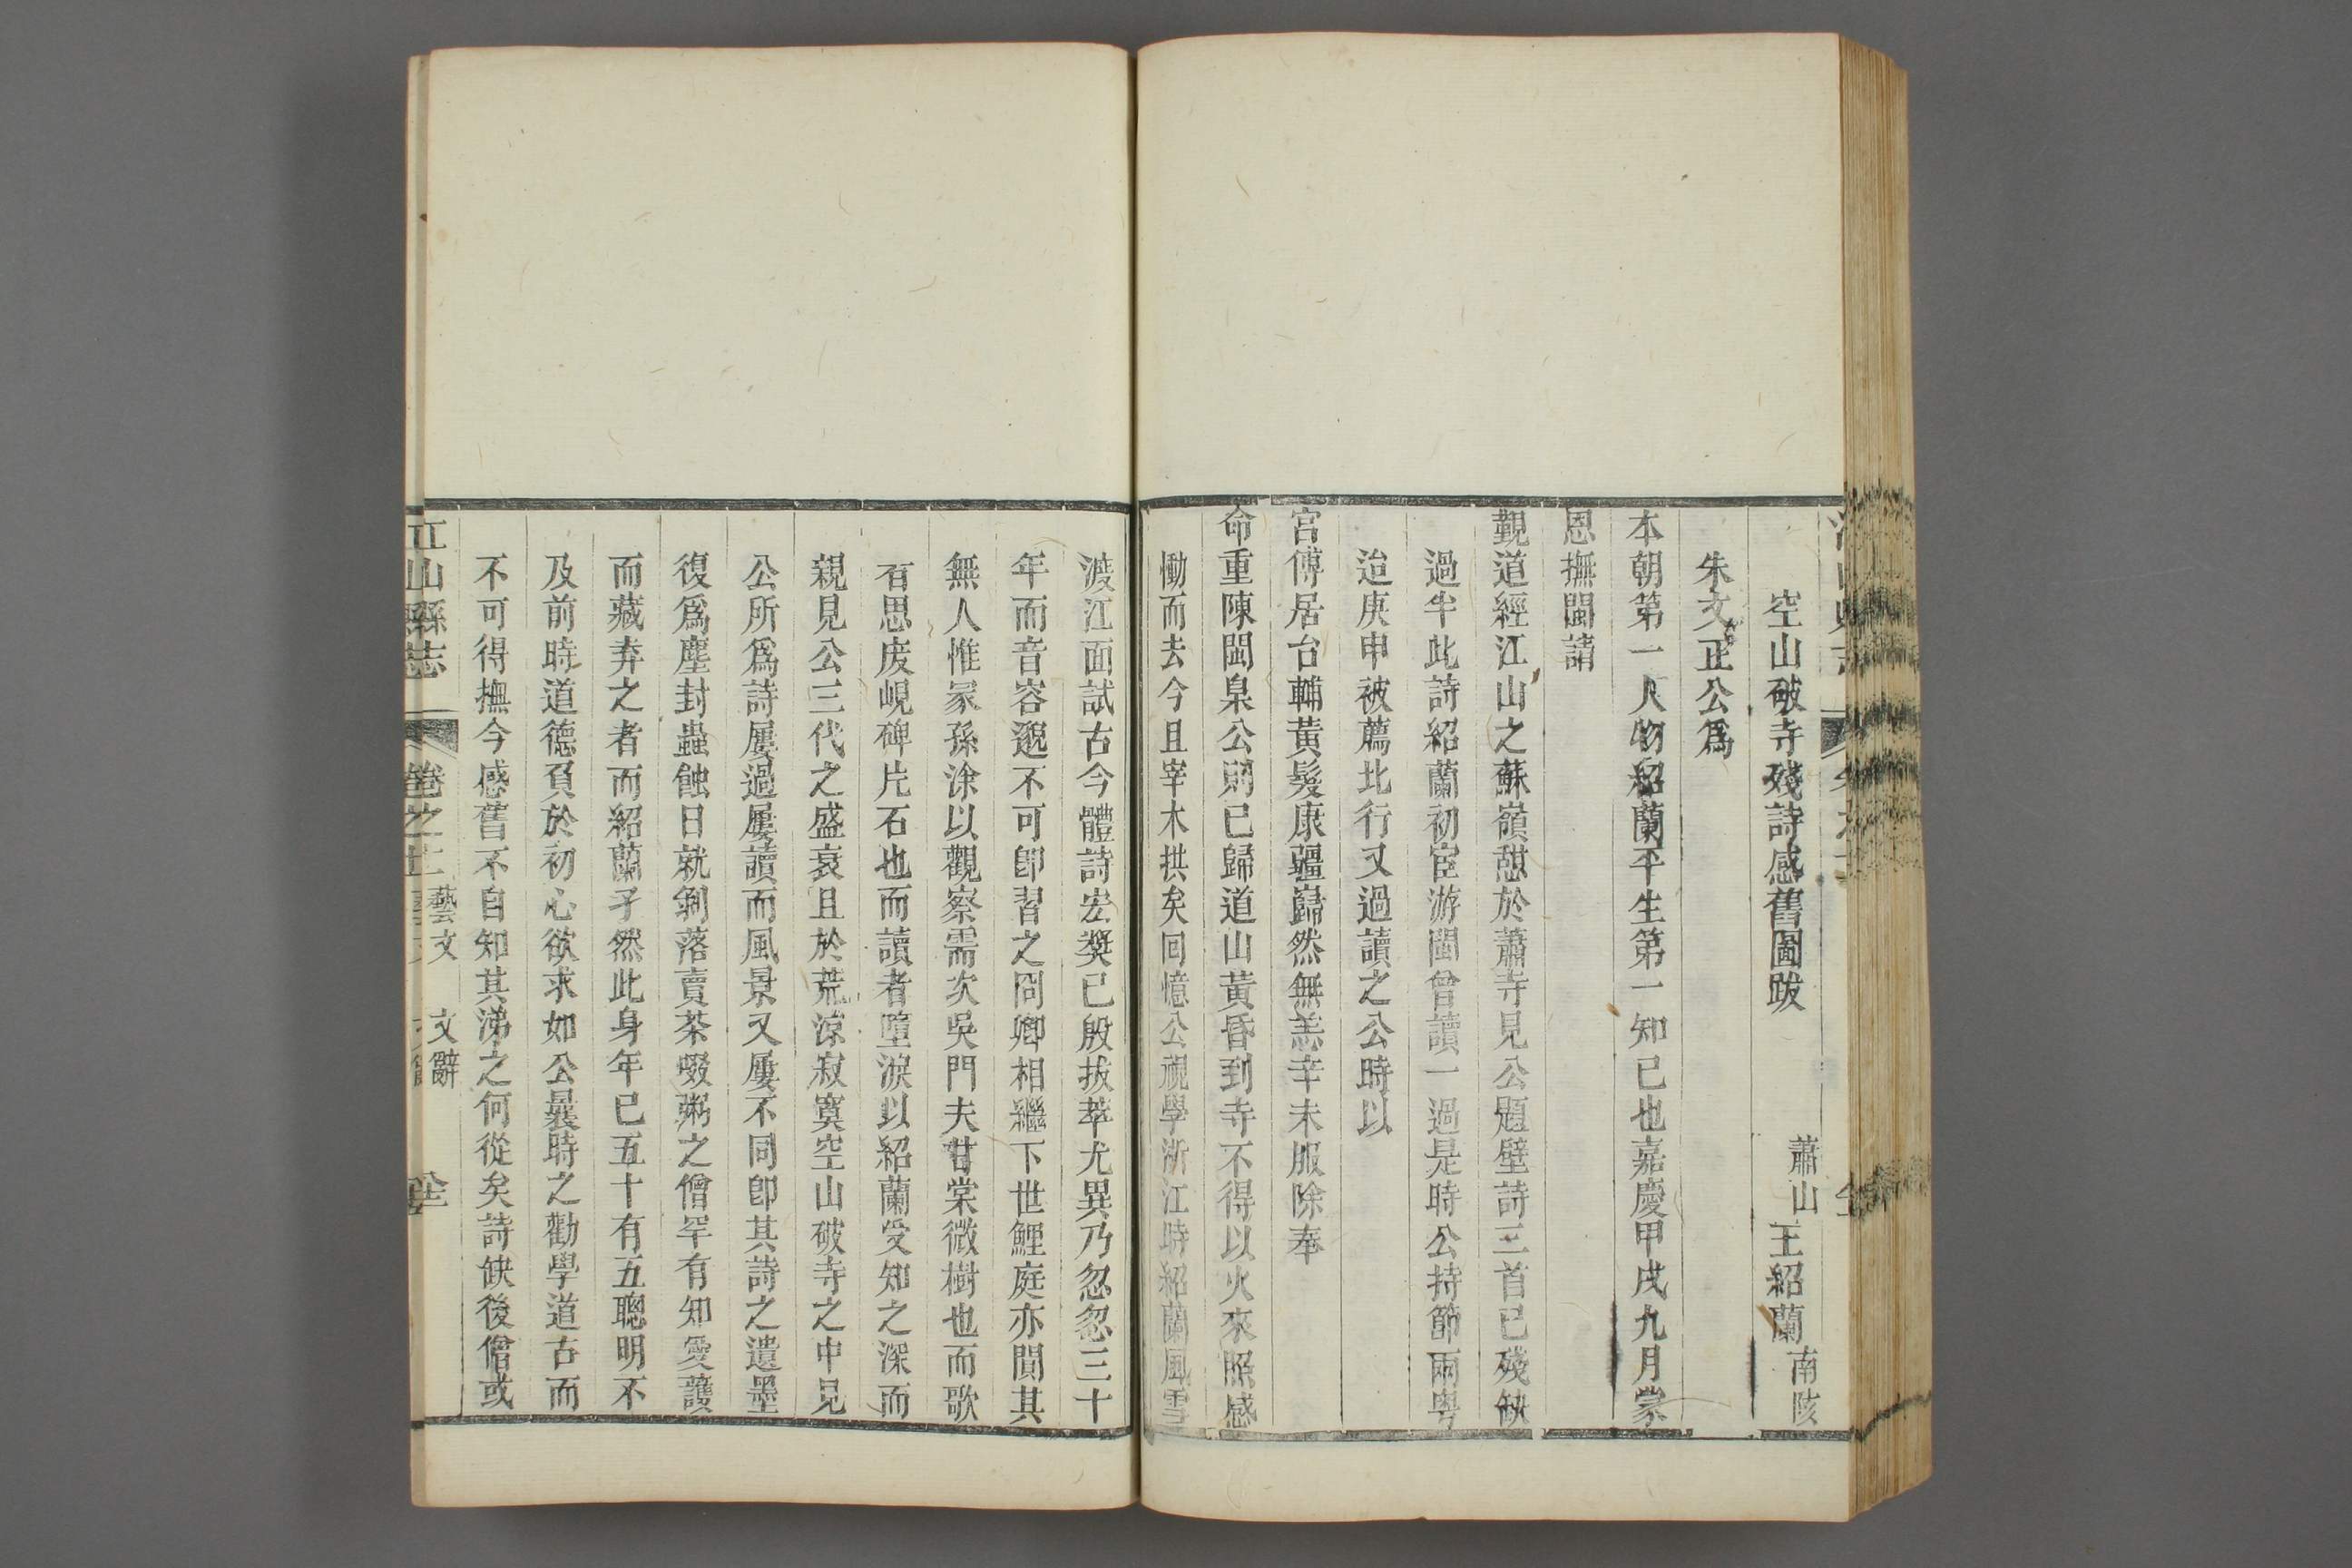 空山破寺殘詩感舊圖跋　蕭山王紹蘭南陔
朱文正公爲
本朝第一人物紹蘭平生第一知已也嘉慶甲戌九月蒙
恩撫閩請
覲道經江山之蘇嶺憇於蕭寺見公題壁詩三首已殘缺
過半此詩紹蘭初宦游閩曾讀一過是時公持節兩粤
迨庚申被薦北行又過讀之公時以
宮傅居台輔黃髮康疆巋然無恙辛未服除奉
命重陳閩臬公則已歸道山黃昏到寺不得以火來照感
慟而去今且宰木拱矣回憶公視學浙江時紹蘭風雪
渡江面試古今體詩宏奬已殷拔萃尤異乃忽忽三十
年而音容邈不可卽習之冏卿相繼下世鯉庭亦聞其
無人惟冢孫涂以觀察需次吳門夫甘棠微樹也而歌
者思废峴碑片石也而讀者墮淚以紹蘭受知之深而
親見公三代之盛衰且於荒凉寂寞空山破寺之中見
公所爲詩屢過屢讀而風景又屢不同卽其詩之遺墨
復爲塵封蟲蝕日就剝落賣茶啜粥之僧罕有知愛護
而藏弆之者而紹蘭孑然此身年已五十有五聰明不
及前時道德負於初心欲求如公曩時之勸學道古而
不可得撫今感舊不自知其涕之何從矣詩缺後僧或
江山縣志　卷之十一　藝文　文辭